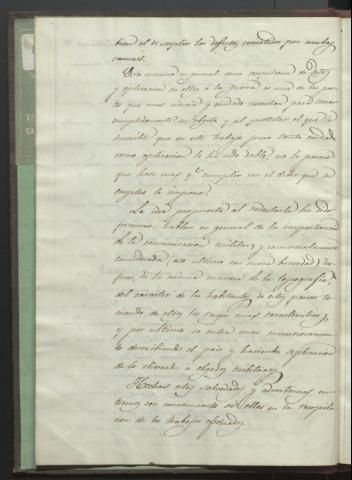 bien el de suplir los defectos cometidos por ambas
causas.
Esta memoria en general como recopilacion de datos
y aplicacion de ellos à la guerra, es una de las par-
te que mas ciencia y cuidado necesitan para llenar
cumplidamente su objeto, y al
sumible que en este trabajo puso tanto cuidado
como aplicacion le ha sido dable, no le parece
que hace mas q.e cumplir con el deber que su
empleo le impone.
La idea propuesta al redactarla ha sido
primero: hablar en general de la importancia
de la comunicacion militar y comercialmente
considerada (esto ultimo con suma brevedad) des-
pues, de la misma manera de la topografia,
del caracter de los habitantes de estos paises to-
mando de ellos los rasgos mas caracteristicos,
y por ultimo se entra mas minuciosamen-
te describiendo el pais y haciendo aplicacion
de lo observado a objetos militares.
Hechas estas salvedades y advertencias, en-
tremos con conocimiento de ellas en la recopila-
cion de los trabajos efectuados